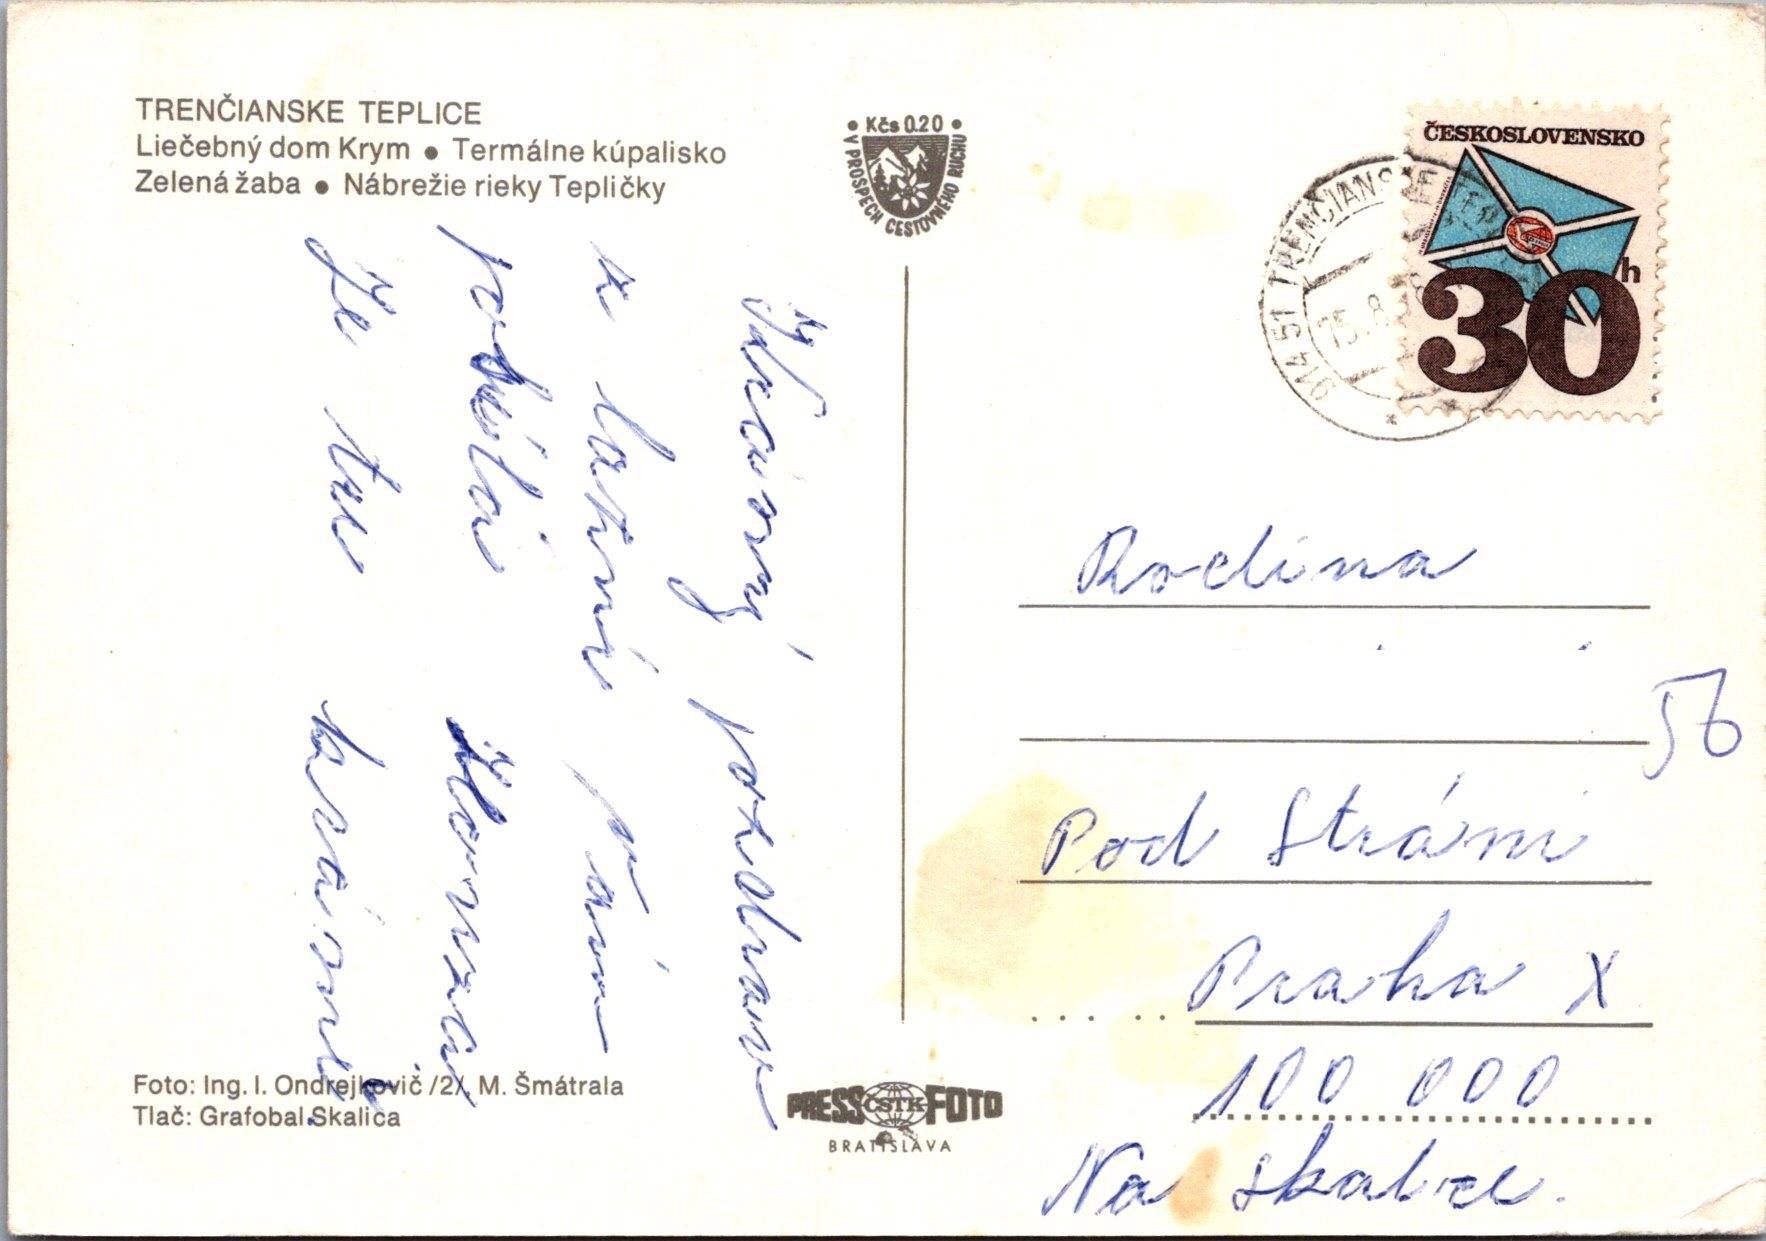 TRENČIANSKE TEPLICE
Liečebný dom Krym ● Termálne kúpalisko
Zelená žaba ● Nábrežie rieky Tepličky
• Kčs 0.20 •
V PROSPECH CESTOVNÉHO RUCHU
ČESKOSLOVENSKO
30h
914 51 TRENČIANSKE TEP
15.8.
pozdrav
z
posílá
Je tu krásně.
Rodina
56
Pod Strání
Praha X
100 000
Na Skalce.
Foto: Ing. I. Ondrejkovič /2/, M. Šmátrala
Tlač: Grafobal Skalica
PRESS ČSTK FOTO
BRATISLAVA